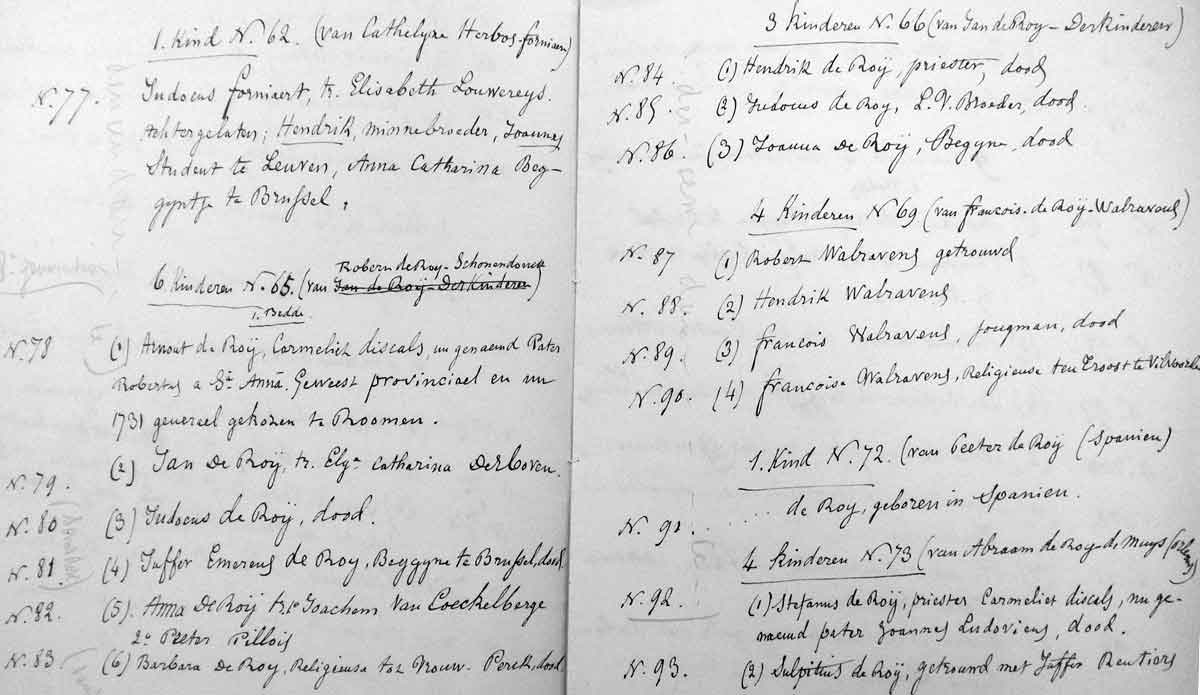 1. Kind N. 62. (van Cathelyne Herbos-forniaert)
N. 77. Judocus forniaert, tr. Elisabeth Louwereys.
achtergelaten; Hendrik, minnebroeder, Joannes
Student te Leuven, Anna Catharina Beg-
gyntje te Brussel.
6 Kinderen N. 65. (van Jan de Roÿ-DerKinderen)
Robern de Roy-
1. Bedde
N. 78 (1) Arnout de Roÿ, Carmeliet discals, nu genaemd Pater
Robertus a St. Anna. Geweest provinciael en nu
1731 genereel gekozen te Roomen.
N. 79. (2) Jan De Roÿ, tr. Catharina
N. 80 (3) Judocus de Roÿ, dood.
N. 81. (4) Juffer Emerens de Roy, Beggyne te Brussel, dood.
N. 82. (5). Anna De Roÿ tr. 1e Joachem Van Coeckelberge
2e Peeter Pillois
N. 83 (6) Barbara De Roy, Religieuse tot Vrouw. Perck, dood
3 Kinderen N. 66 (van Jan de Roy-Derkinderen)
N. 84 (1) Hendrik de Roÿ, priester, dood
N. 85. (2) Judocus de Roy, L. V. Broeder, dood.
N. 86. (3) Joanna De Roÿ, Begyne, dood
4 Kinderen N. 69 (van francois de Roÿ-Walravens)
N. 87 (1) Robert Walravens getrouwd
N. 88. (2) Hendrik Walravens
N. 89. (3) francois Walravens, jongman, dood
N. 90. (4) francoise Walravens, Religieuse ten Troost te Vilvoorden
1. Kind N. 72. (van Peeter de Roÿ (Spanien)
N. 91 .... de Roy, geboren in Spanien.
4 Kinderen N. 73 (van Abraam de Roy-de Muys
N. 92. (1) Stefanus de Roÿ, priester Carmeliet discals, nu ge-
naemd pater Joannes Ludovicus, dood.
N. 93. (2) Sulpitius de Roÿ, getrouwd met Juffer Rentiers